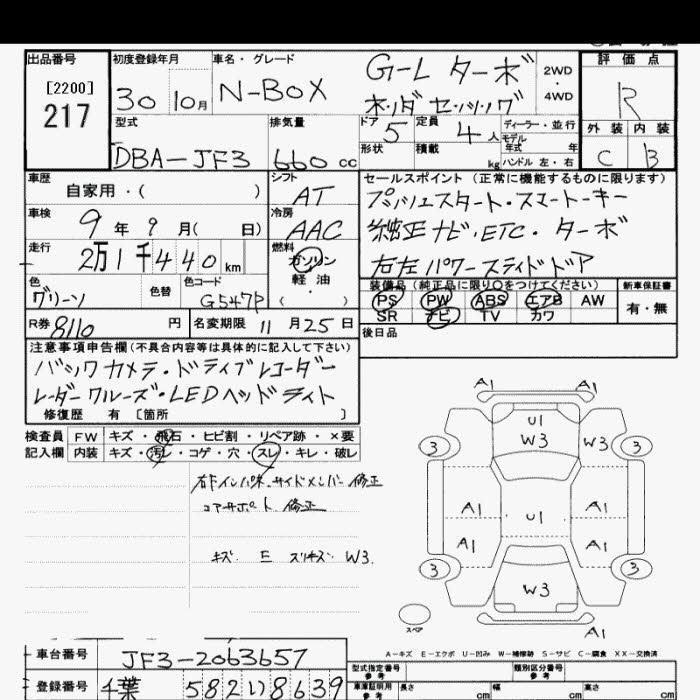 出品番号
[2200]
217
初度登録年月
30 10月
車名・グレード
N-BOX
G-L ターボ
ホンダセンシング
2WD・4WD
評価点
R
外装 内装
C B
型式
DBA-JF3
排気量
660 cc
ドア
5
定員
4人
ディーラー・並行
モデル年式 年
形状
積載 kg
ハンドル 左・右
車歴
自家用・( )
シフト
AT
セールスポイント (正常に機能するものに限ります)
プッシュスタート・スマートキー
純正ナビ・ETC・ターボ
右左パワースライドドア
車検
9年9月( 日)
冷房
AAC
走行
2万1千440km
燃料
ガソリン
軽油
・( )
色
グリーン
色替
色コード
G547P
装備品 (純正品に限り○をつけてください)
PS PW ABS エアB AW
SR ナビ TV カワ
新車保証書
有・無
R券 8110 円
名変期限 11月25日
後日品
注意事項申告欄(不具合内容等は具体的に記入して下さい)
バックカメラ・ドライブレコーダー
レーダークルーズ・LEDヘッドライト
修復歴 有 〔箇所 〕
検査員記入欄
FW キズ・飛石・ヒビ割・リペア跡・×要
内装 キズ・汚レ・コゲ・穴・スレ・キレ・破レ
右Fインパネ・サイドメンバー修正
コアサポート 修正
キズ E スリキズ W3
A1 A1
U1
W3 W3
3 3
A1 A1
U1
A1 A1
3 3
W3
A1
スペア
A-キズ E-エクボ U-凹み W-補修跡 S-サビ C-腐食 XX-交換済
車台番号
JF3-2063657
登録番号
千葉 582 い 8639
型式指定番号 参考
類別区分番号 参考
車庫証明用 参考
長さ cm
幅 cm
高さ cm